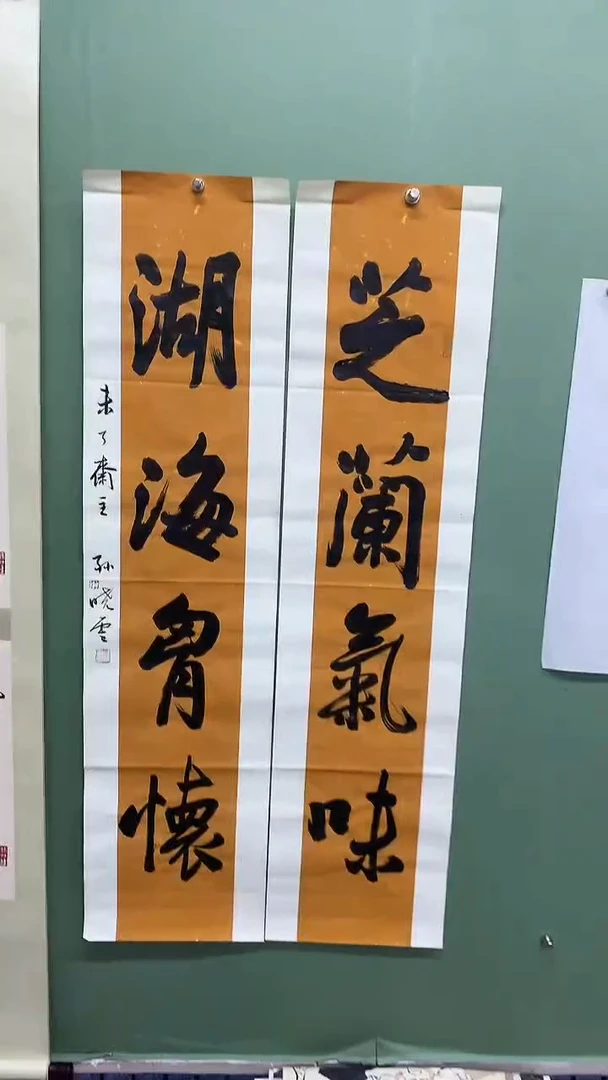 芝蘭氣味
湖海胷懷
未了齋主 孫曉雲